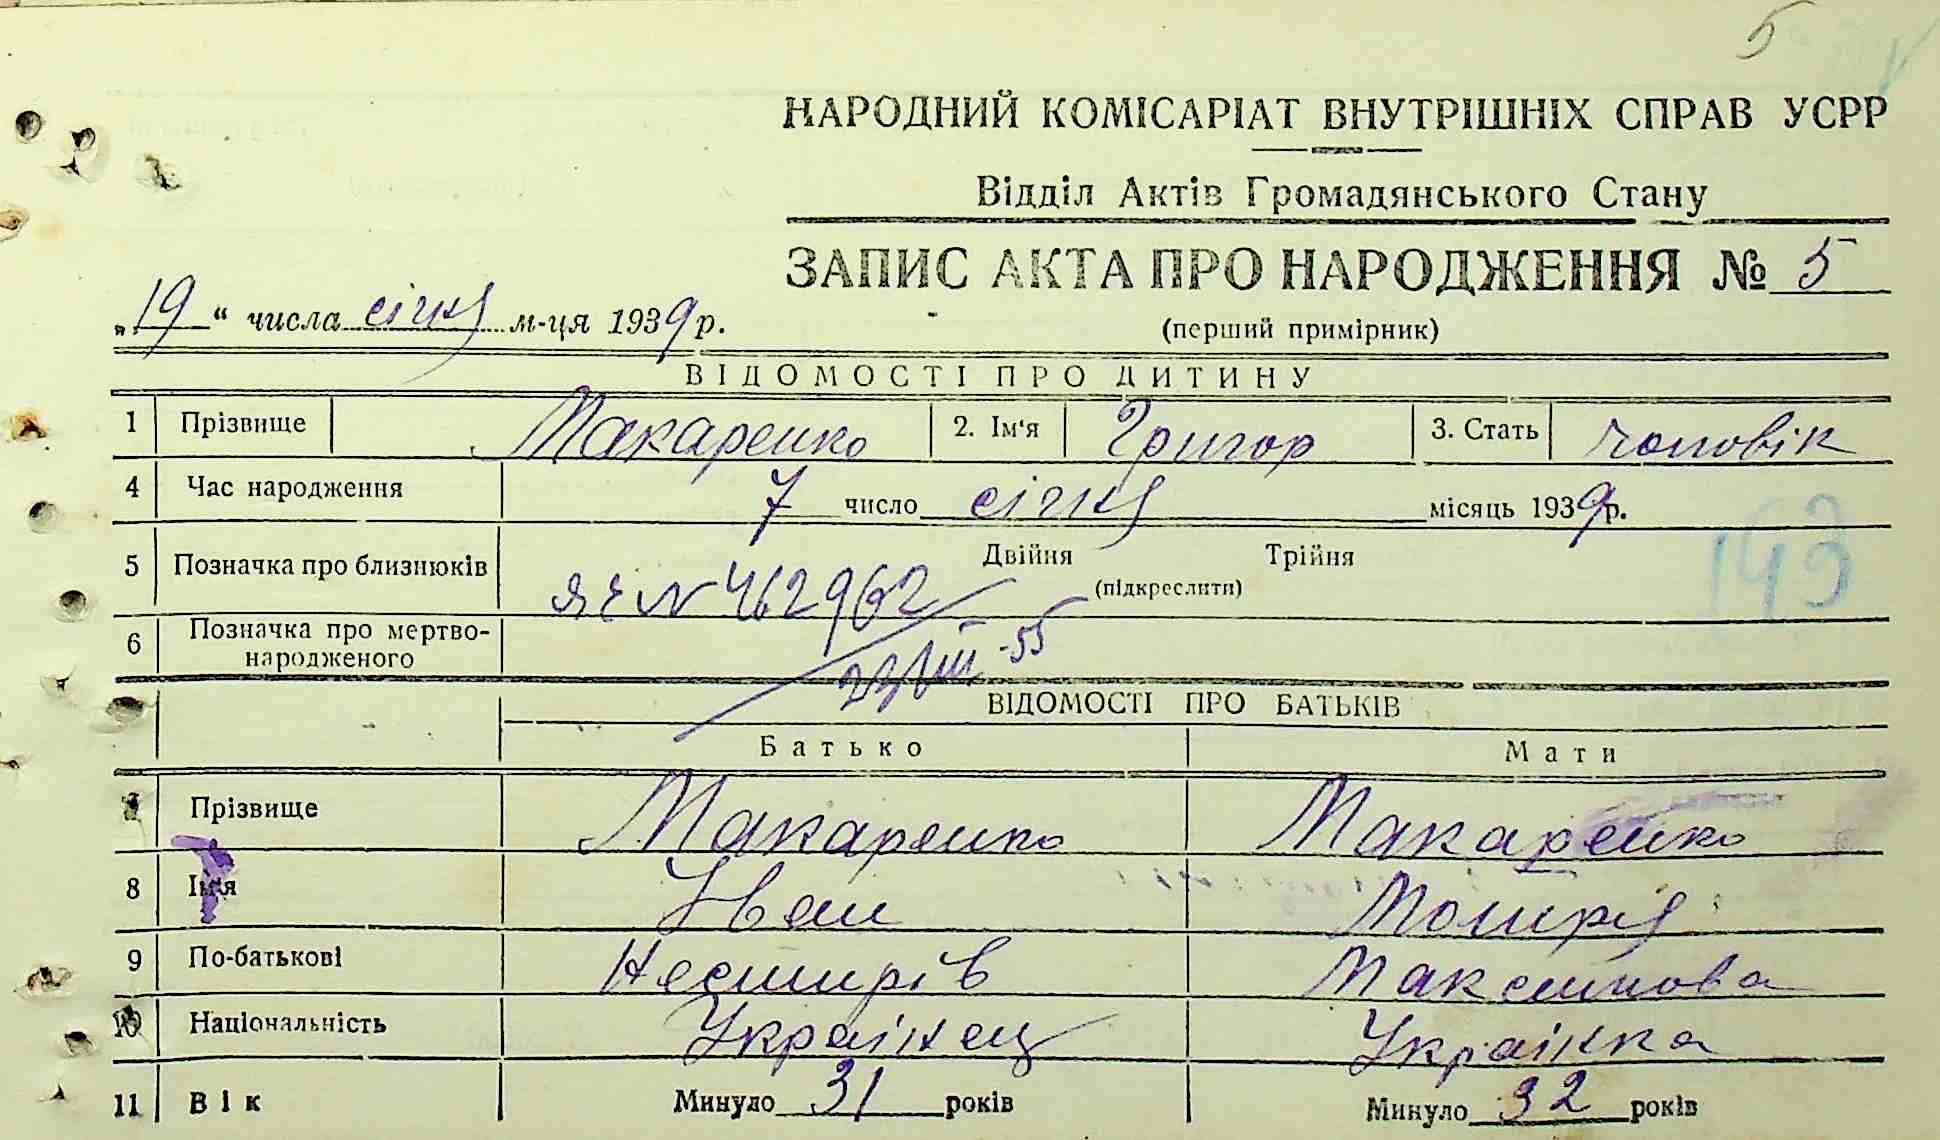 5
НАРОДНИЙ КОМІСАРІАТ ВНУТРІШНІХ СПРАВ УСРР
Відділ Актів Громадянського Стану
ЗАПИС АКТА ПРО НАРОДЖЕННЯ № 5
„19“ числа січня м-ця 1939 р.
(перший примірник)
ВІДОМОСТІ ПРО ДИТИНУ
1 Прізвище Макаренко 2. Ім'я Григор 3. Стать чоловік
4 Час народження 7 число січня місяць 1939 р.
143
5 Позначка про близнюків Двійня Трійня
(підкреслити)
№ 462962
6 Позначка про мертво-
народженого
23/VIII-55
ВІДОМОСТІ ПРО БАТЬКІВ
Батько Мати
7 Прізвище Макаренко Макаренко
8 Ім'я Иван
9 По-батькові Максимова
10 Національність Українец Українка
11 Вік Минуло 31 років Минуло 32 років